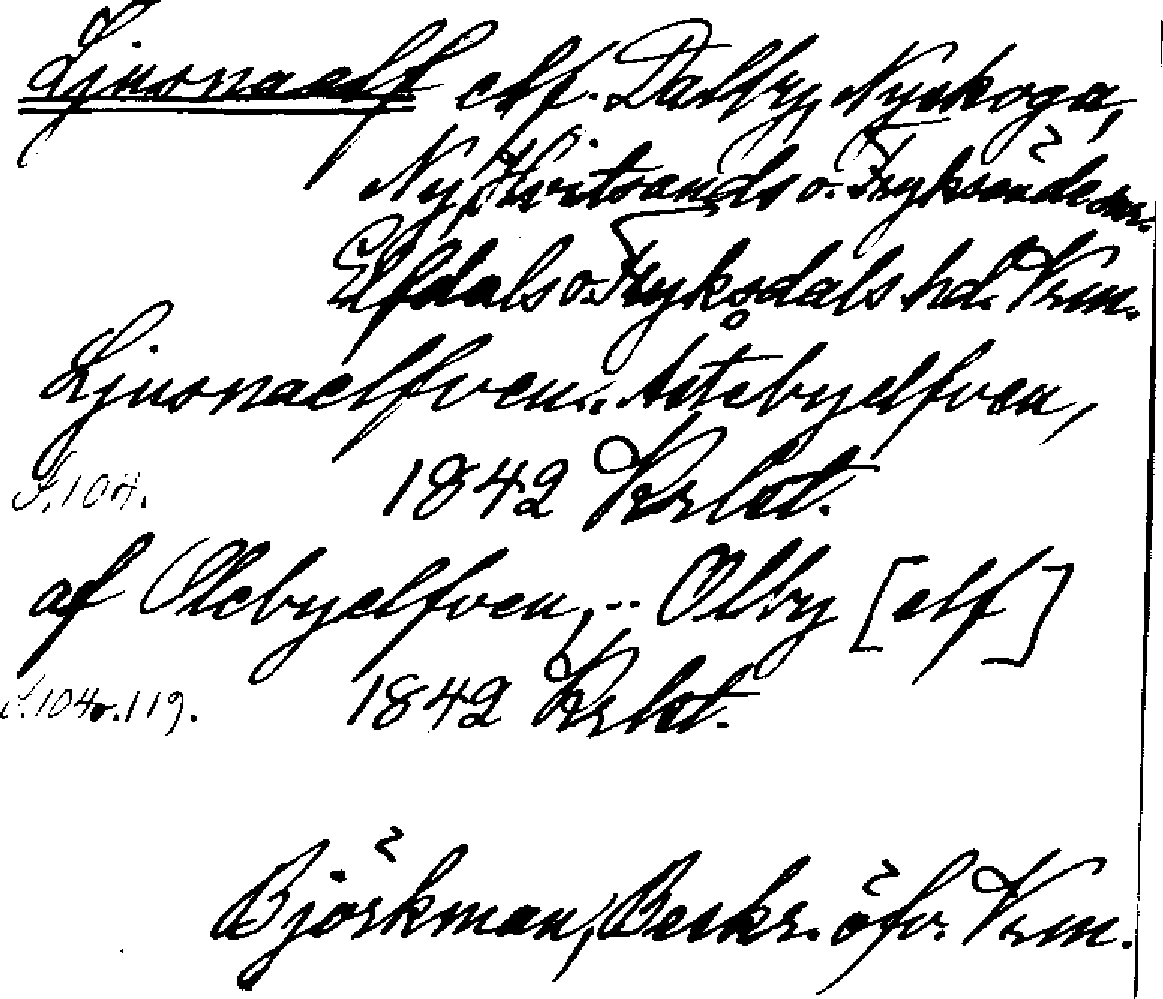 Ljusnaelf elf. Dalby, Nyskoga,
Ny, Hvitsands o. Fryksände snr.
Elfdals o. Fryksdals hd. Vrm.
Ljusnaelfven.. Åstebyelfven,
S. 104. 1842 Krlst.
af Olebyelfven, .. Olby [elf]
S. 104 o. 119. 1842 Krlst.
Björkman, Beskr. öfv. Vrm.